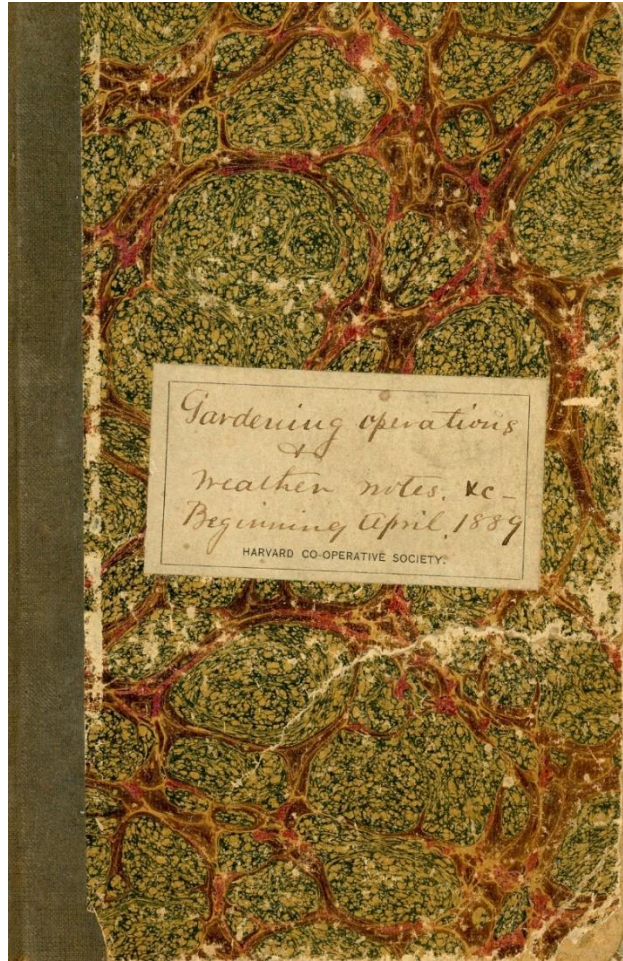 Gardening operations
&
Weather notes. &c-
Beginning April, 1889
HARVARD CO-OPERATIVE SOCIETY.